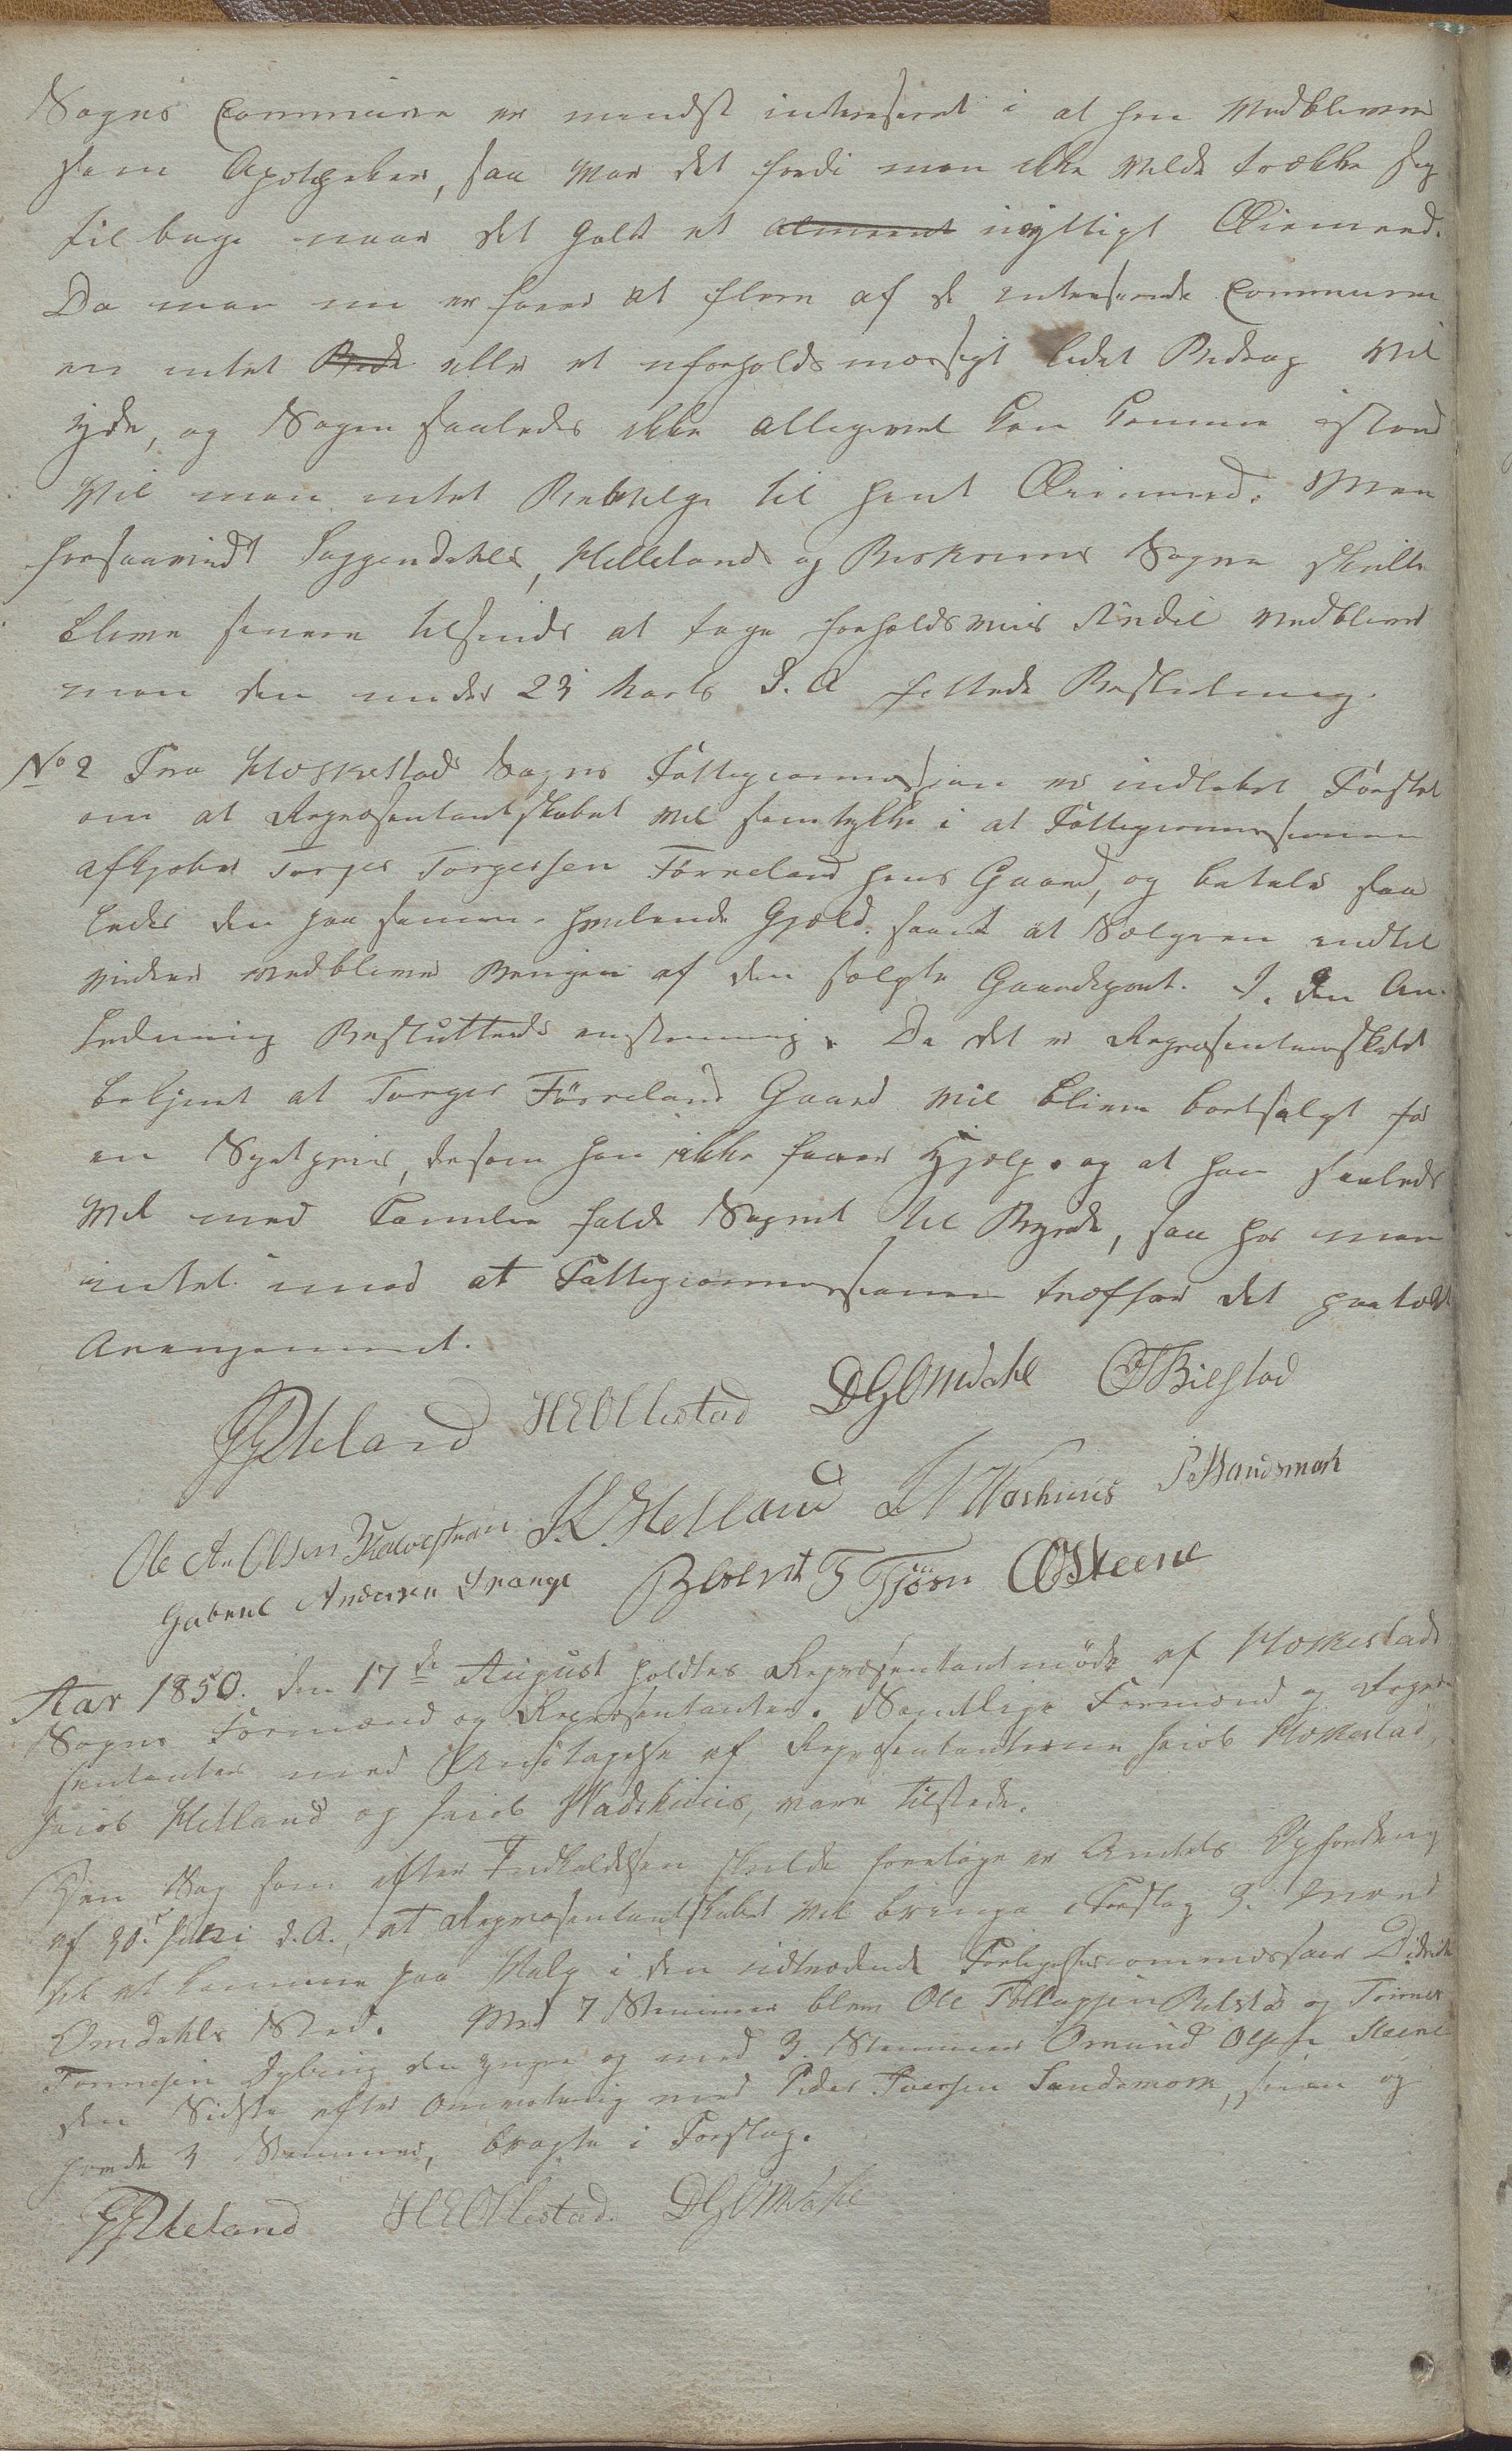 Sogns Commune er mindst interesseret i at han vedbliver
som Apotheker, saa var det fordi man ikke vilde trække sig
tilbage naar det galdt et almeent nyttigt Øiemeed.
Da man nu erfarer at flere af de interesserede Communer
en intet Bide eller et uforholdsmæssigt lidet Bidrag vil
yde, og Sagen saaledes ikke alligevel kan komme istand
vil man intet Bevilge til hint Øiemeed. Men
forsaavidt Soggendahls, Hellelands og Birkrems Sogne skulle
blive senere tilsinds at tage forholdsviis Andel vedbliver
man den under 23 Marts d. A fattede Beslutning.
No 2 Fra Hæskestad Sogns Fattigcommission er indløbet Forslag
om at Repræsentantskabet vil samtykke i at Fattigcommissionen
afkjøber Torger Torgersen Førreland hans Gaard, og betaler saa
ledes den paa samme hvilende Gjæld. samt at Sælgeren indtil
videre vedbliver Brugen af den solgte Gaardepart. I den An-
ledning Besluttedes enstemmig. Da det er Repræsentantskabet
bekjent at Torger Førreland Gaard vil blive bortsolgt for
en Spotpriis, dersom han ikke faaer Hjælp. og at han saaledes
vil med Familie falde Sognet til Byrde, saa har man
intet imod at Fattigcommissionen træffer det paatænkte
Arangement.
H E Ollestad D G Omdahl O T Bilstad
Ole An Olsen K Helland
Gabriel Andersen Drange Berent T Tjørn O O Steene
Aar 1850. den 17de August holdtes Repræsentantmøde af Hæskestad
Sogns Formænd og Repræsentanter. Samtlige Formænd og Repræ-
sentanter med Undtagelse af Repræsentanterne Jacob Hæskestad,
Jacob Helland og Jacob Vadshuus, vare tilstede.
Den Sag som efter Indkaldelsen skulde foretages er Amtets Opfordring
af 20de Juni d. A., at Repræsentantskabet vil bringe i Forslag 3. Mænd
til at komme paa Valg i den udtrædende Forligelsescommissair Didrik
Omdahls Sted. Med 7 Stemmer blev Ole Tollagsen Bilstad og Tønnes
Tønnesen Dybing den yngre og med 3. Stemmer Omund Olsen Steene
den Sidste efter Omvotering med Peder Iversen Sandsmork, som og
havde 3 Stemmer, bragte i Forslag.
H E Ollestad. D G Omdahl